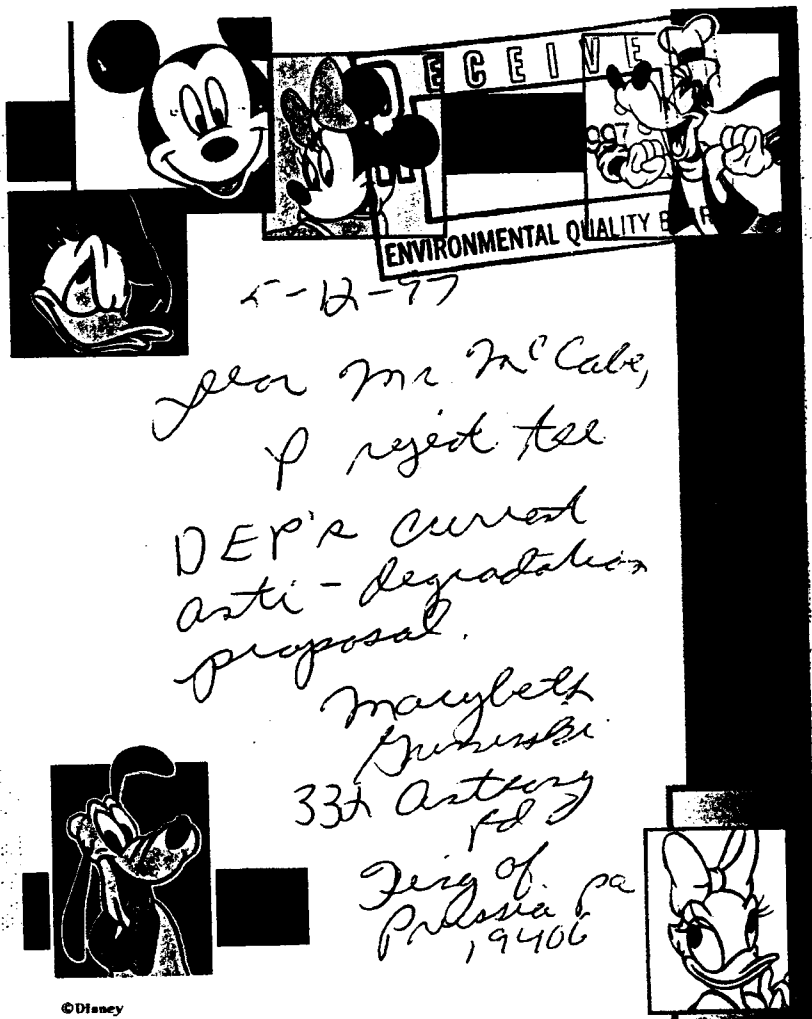 RECEIVE
1997
ENVIRONMENTAL QUALITY B
5-12-97
Dear Mr. McCabe,
I reject the
DEP's current
anti-degradation
proposal.
Marybeth
332 Anthony
Rd
King of
Prussia Pa
19406
©Disney